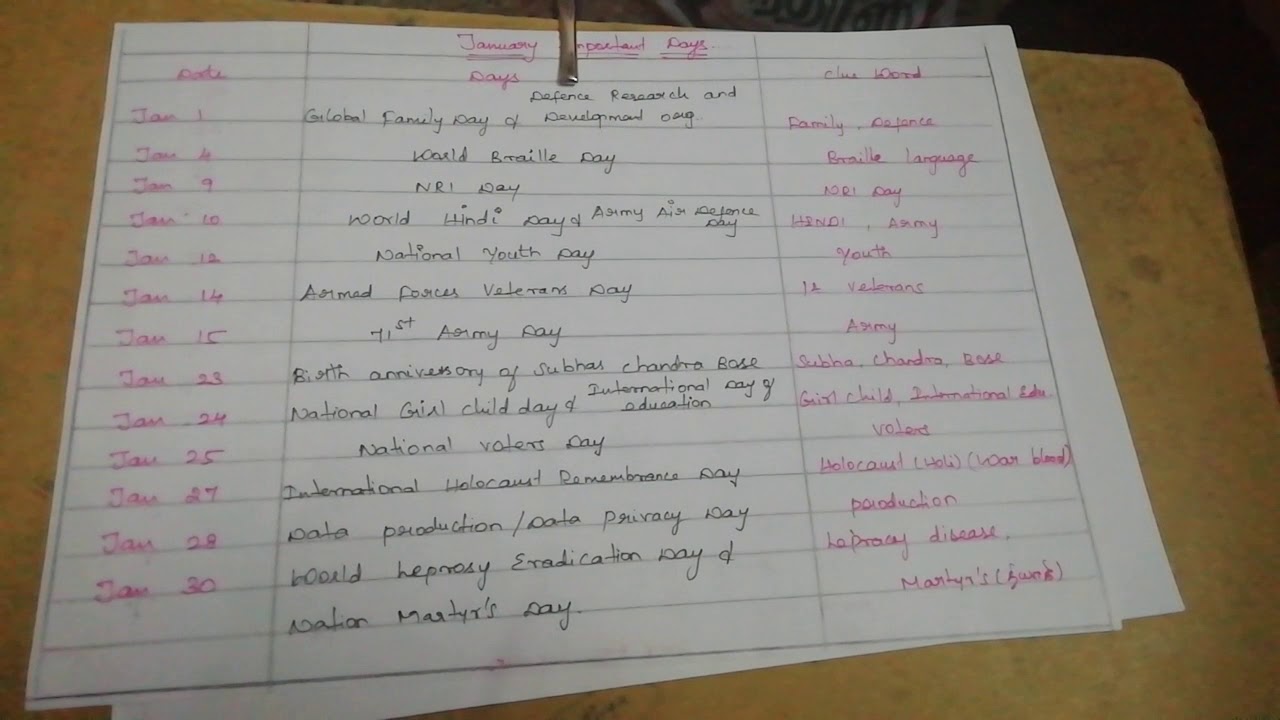 January Important Days.
Date Days Clue Word
Defence Research and
Jan 1 Global Family Day & Development org. Family, Defence
Jan 4 World Braille Day Braille language
Jan 9 NRI Day NRI Day
Jan 10 World Hindi Day & Army Air Defence Day HINDI, Army
Jan 12 National Youth Day Youth
Jan 14 Armed Forces Veterans Day 14 Veterans
Jan 15 71st Army Day Army
Jan 23 Birth anniversory of Subhas Chandra Bose Subha, Chandra, Bose
Jan 24 National Girl child day & International Day of education Girl child, International Edu.
Jan 25 National voters Day voters
Jan 27 International Holocaust Remembrance Day Holocaust (Holi) (War blood)
Jan 28 Data production / Data Privacy Day production
Jan 30 World Leprosy Eradication Day & Lepracy disease.
Nation Martyr's Day. Martyr's